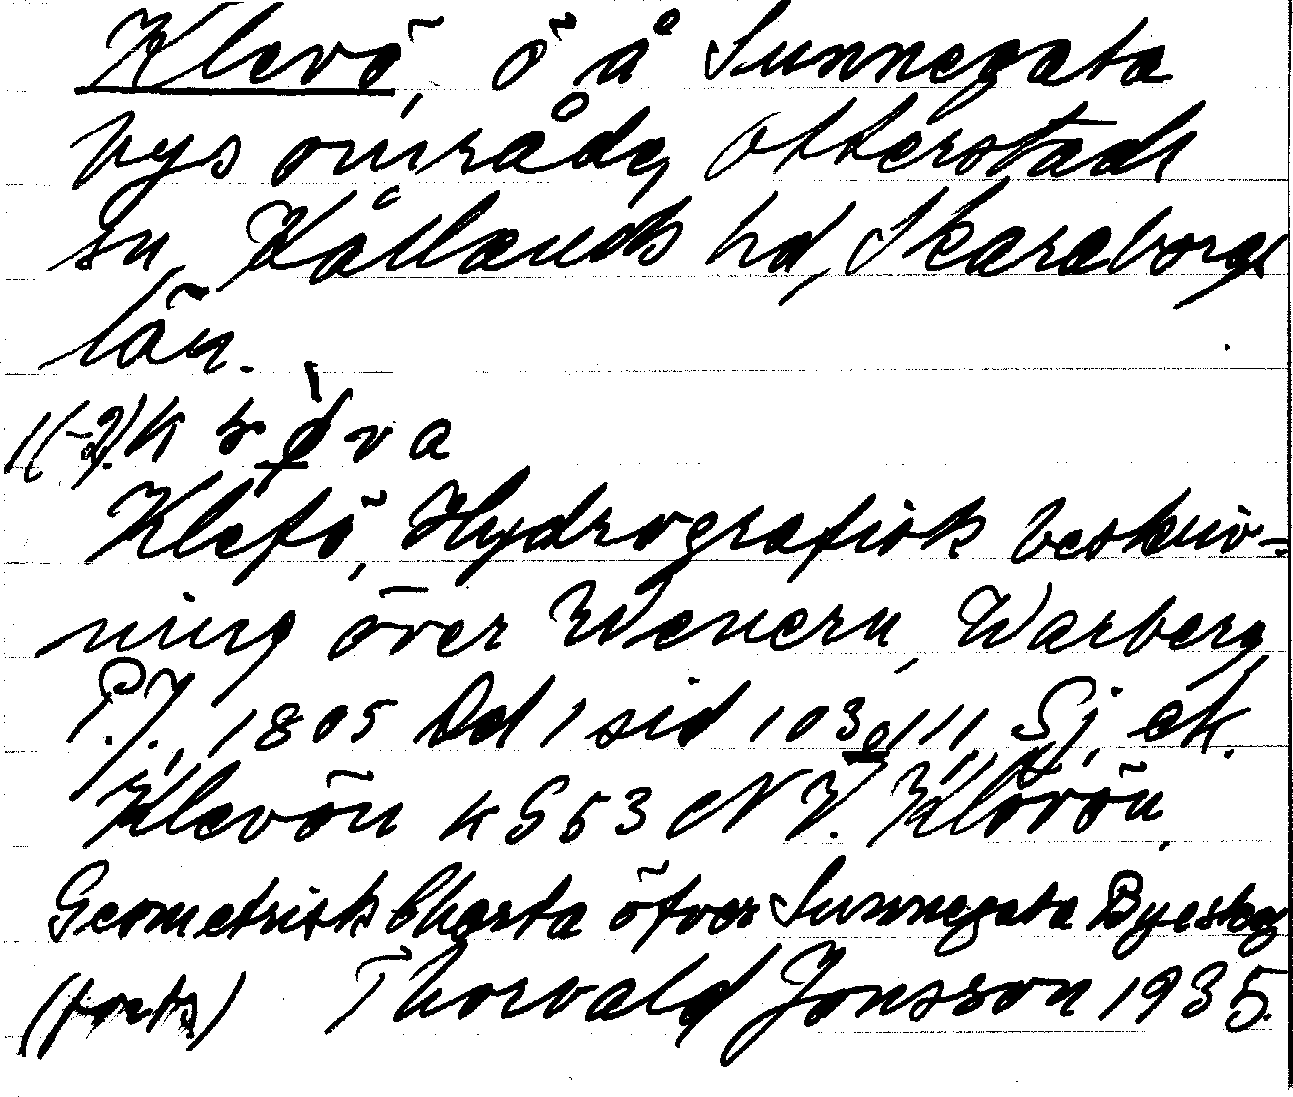 Klevö, ö å Sunnegata
bys område, Otterstads
sn, Kållands hd, Skaraborgs
län.
Klefö, Hydrografisk beskriv-
ning över Wenern, Warberg
P.J., 1805 Dd 1 sid 103 o 111, Sj. ek.
Klevön KG53 NV. Klövön,
Geometrisk Charta öfver Sunnegata Byes
(forts) Thorvald Jonsson 1935.